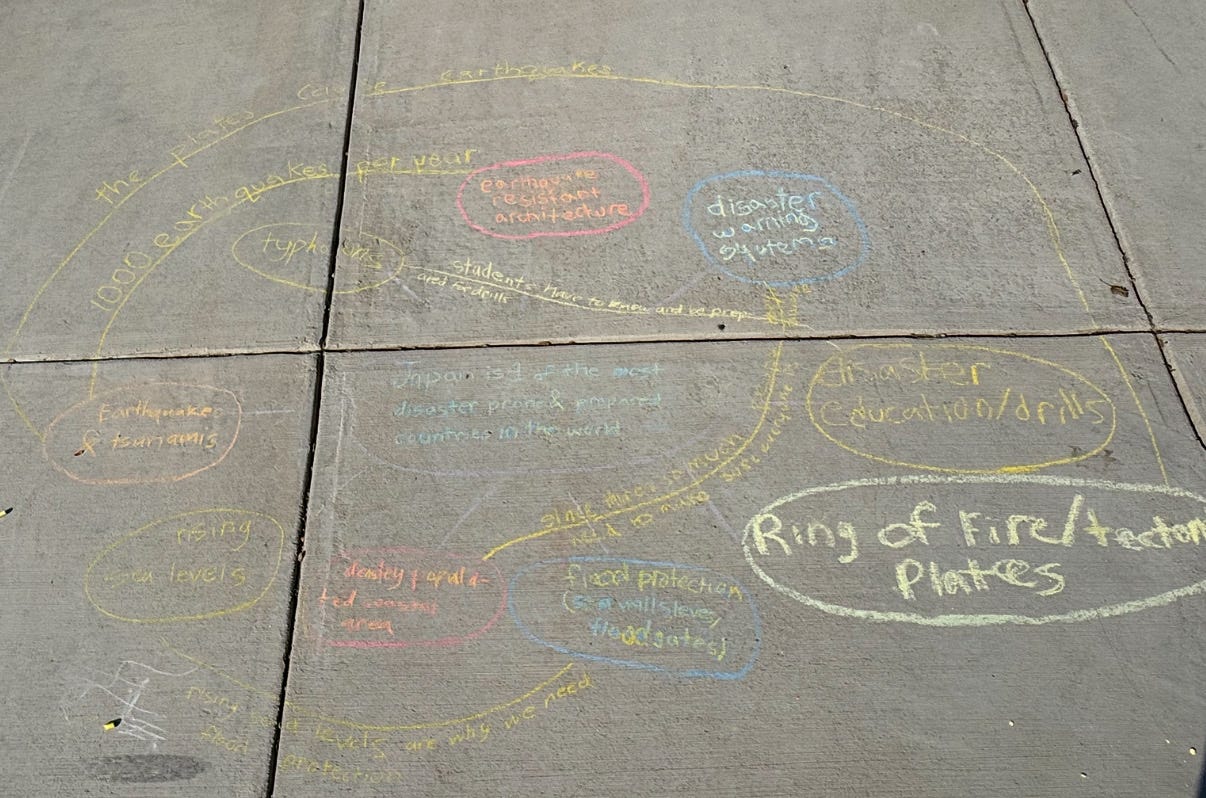 the plates cause earthquakes
1000 earthquakes per year
earthquake
resistant
architecture
disaster
warning
systems
typhoons
students have to know and be prep
ared for drills
Japan is 1 of the most
disaster prone & prepared
countries in the world
disaster
education/drills
Earthquakes
& tsunamis
since theres so much
need to make sure everyone
Ring of Fire/tecton
Plates
rising
sea levels
densley popula-
ted coastal
area
flood protection
(sea walls
floodgates)
rising sea levels are why we need
flood protection